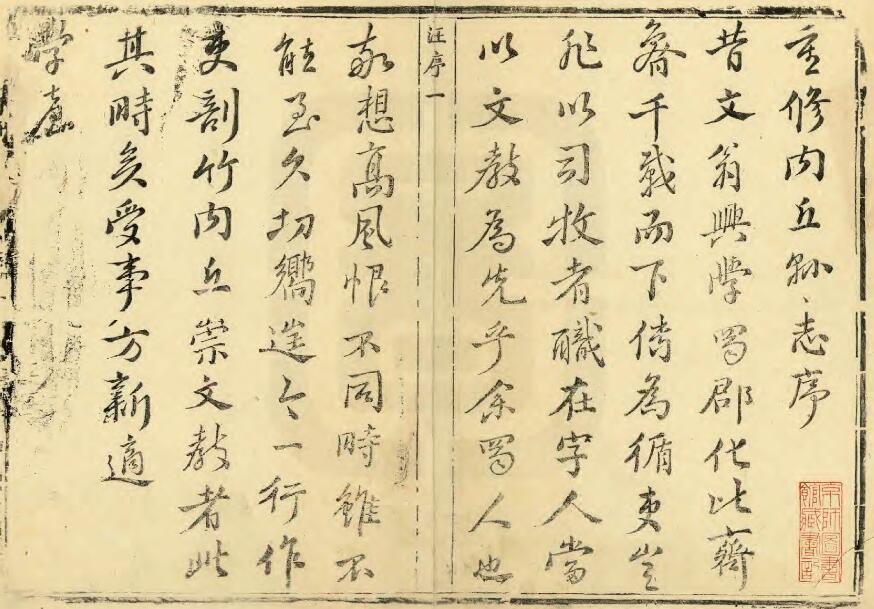 重修内丘縣志序
昔文翁興學蜀郡化比齊
魯千載而下傳為循吏豈
非以司牧者職在字人當
以文教為先乎余蜀人也
汪序一
想高風恨不同時雖不
能至久切嚮進今一行作
吏剖竹内丘崇文教者此
其時矣受事方新適
學臺
京師圖書
館藏書記